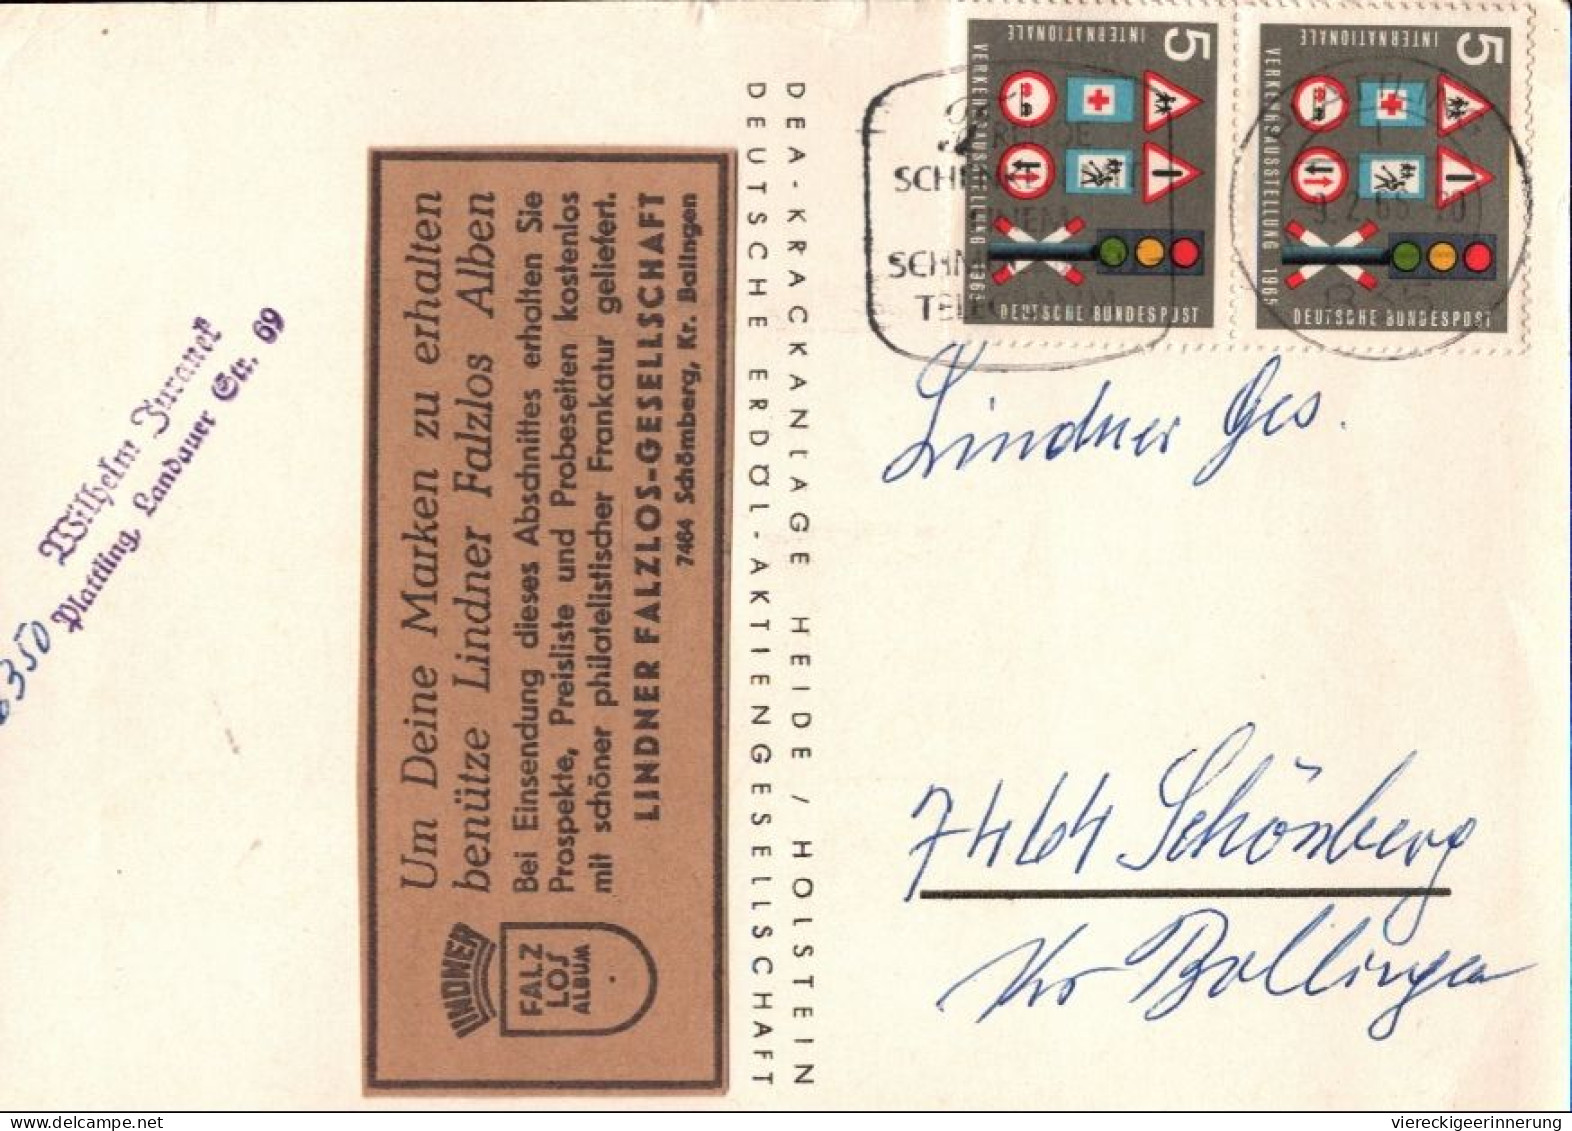 Wilhelm
Plattling, Landauer Str. 69
8350
Um Deine Marken zu erhalten
benütze Lindner Falzlos Alben
Bei Einsendung dieses Abschnittes erhalten Sie
Prospekte, Preisliste und Probeseiten kostenlos
mit schöner philatelistischer Frankatur geliefert.
LINDNER FALZLOS-GESELLSCHAFT
7464 Schömberg, Kr. Balingen
LINDNER
FALZ
LOS
ALBUM
DEA-KRACKANLAGE HEIDE / HOLSTEIN
DEUTSCHE ERDÖL-AKTIENGESELLSCHAFT
5
INTERNATIONALE
VERKEHRSAUSSTELLUNG 1965
DEUTSCHE BUNDESPOST
5
INTERNATIONALE
VERKEHRSAUSSTELLUNG 1965
DEUTSCHE BUNDESPOST
Lindner Ges.
7464 Schömberg
Kr Balingen
delcampe.net
viereckigeerinnerung